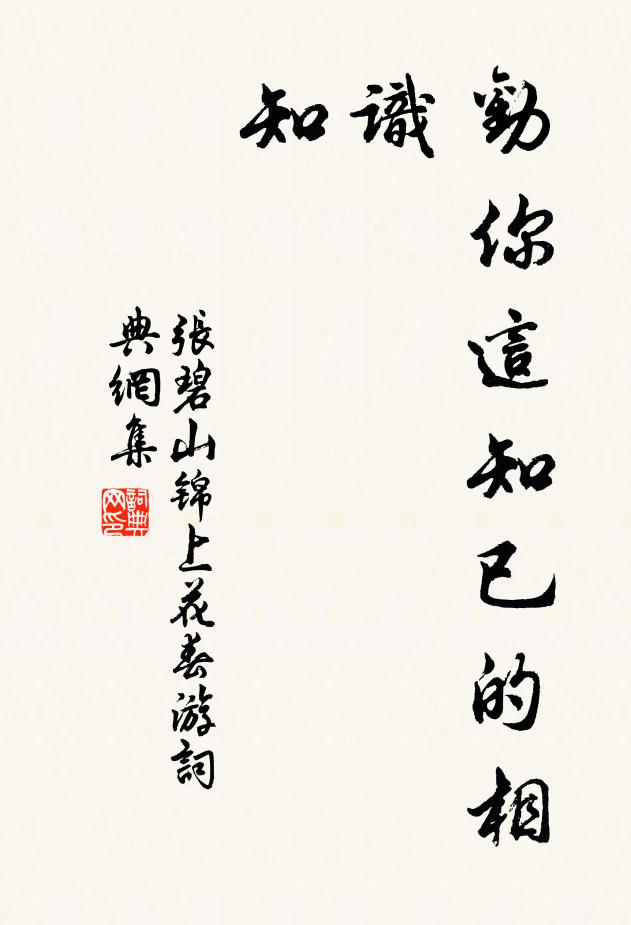 勸你這知已的相
識
知
張碧山錦上花春游詞
典網集
詞典
网印